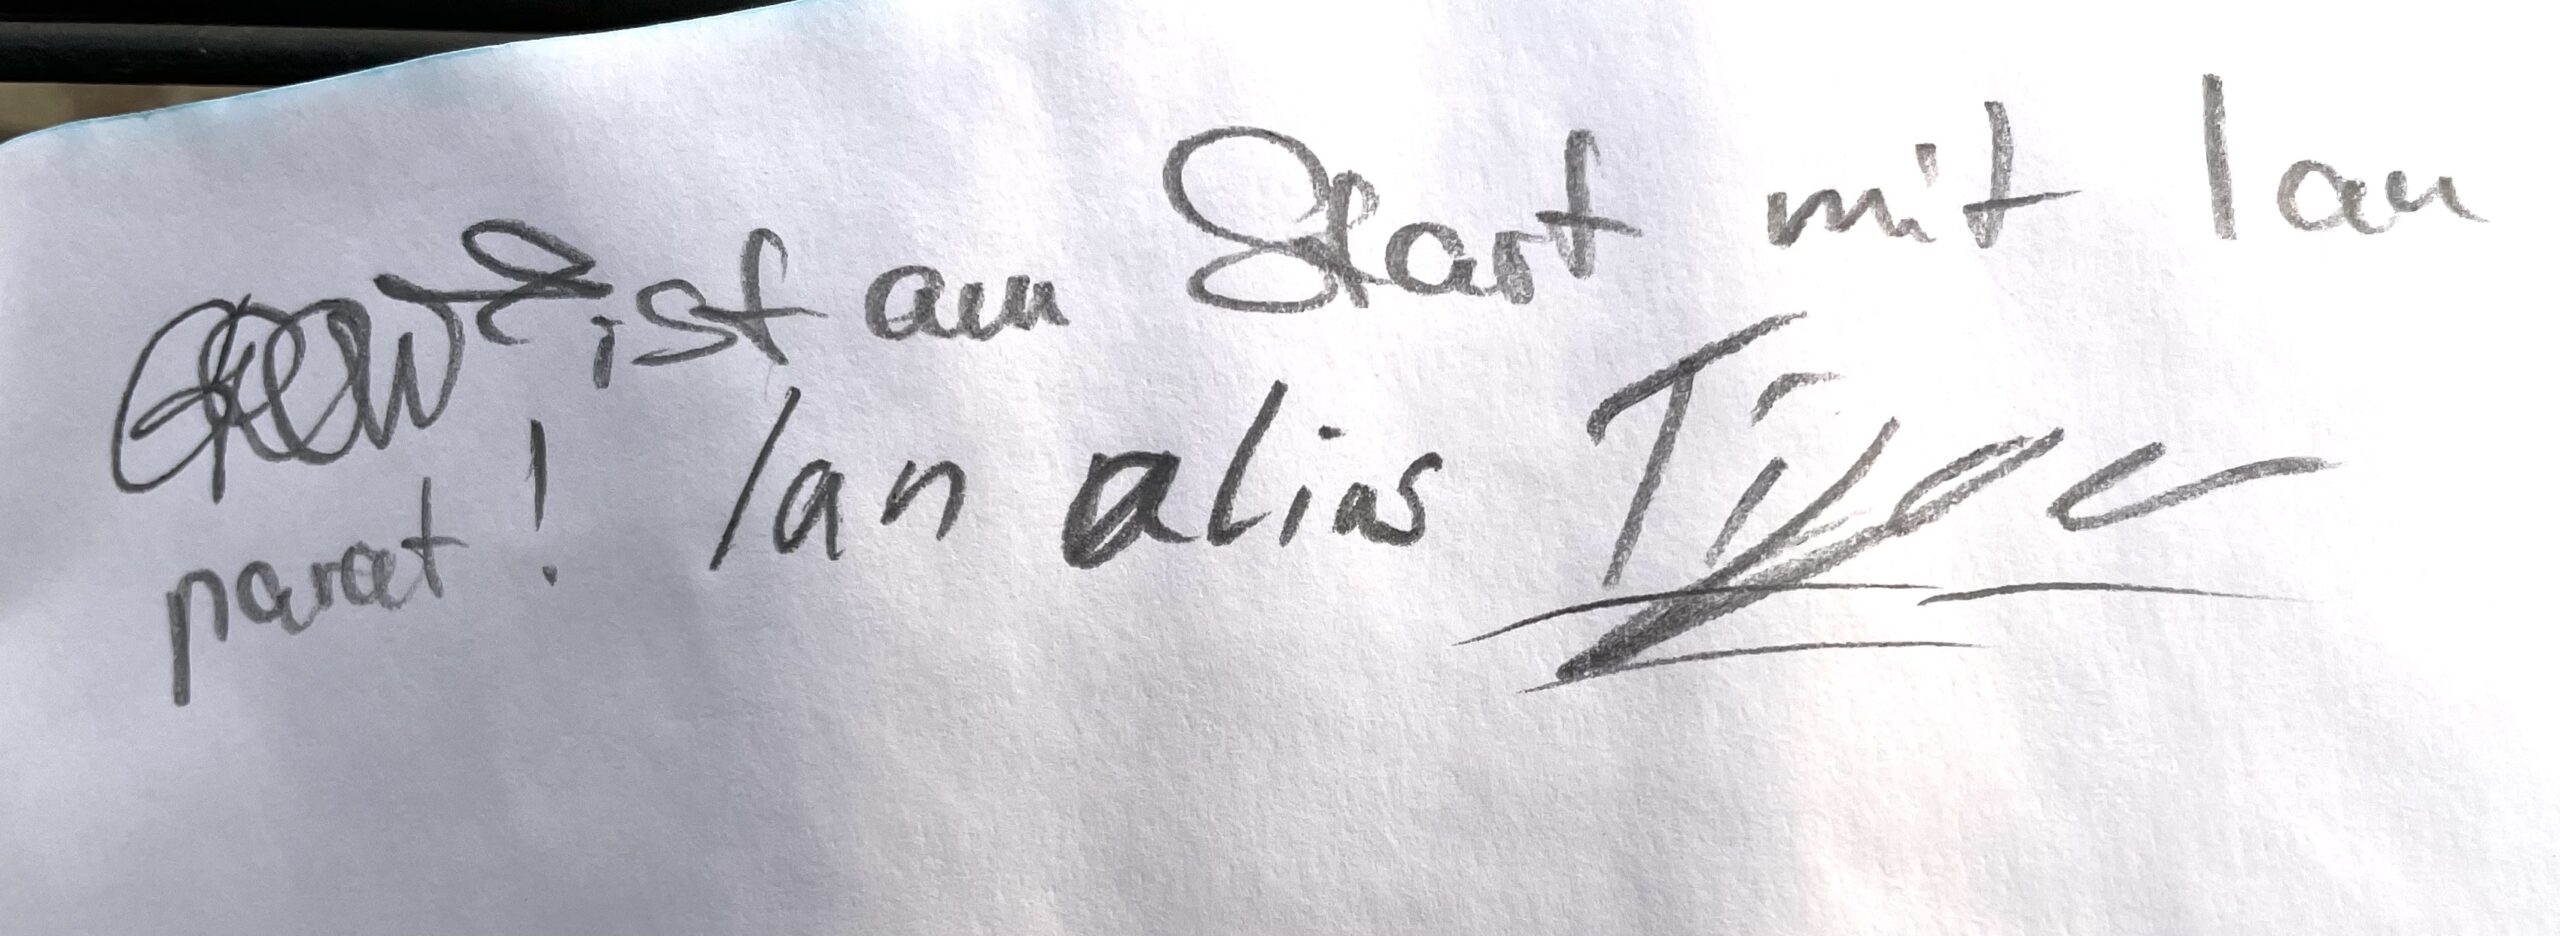 ist am Start mit Ian
parat! Ian alias Tiger